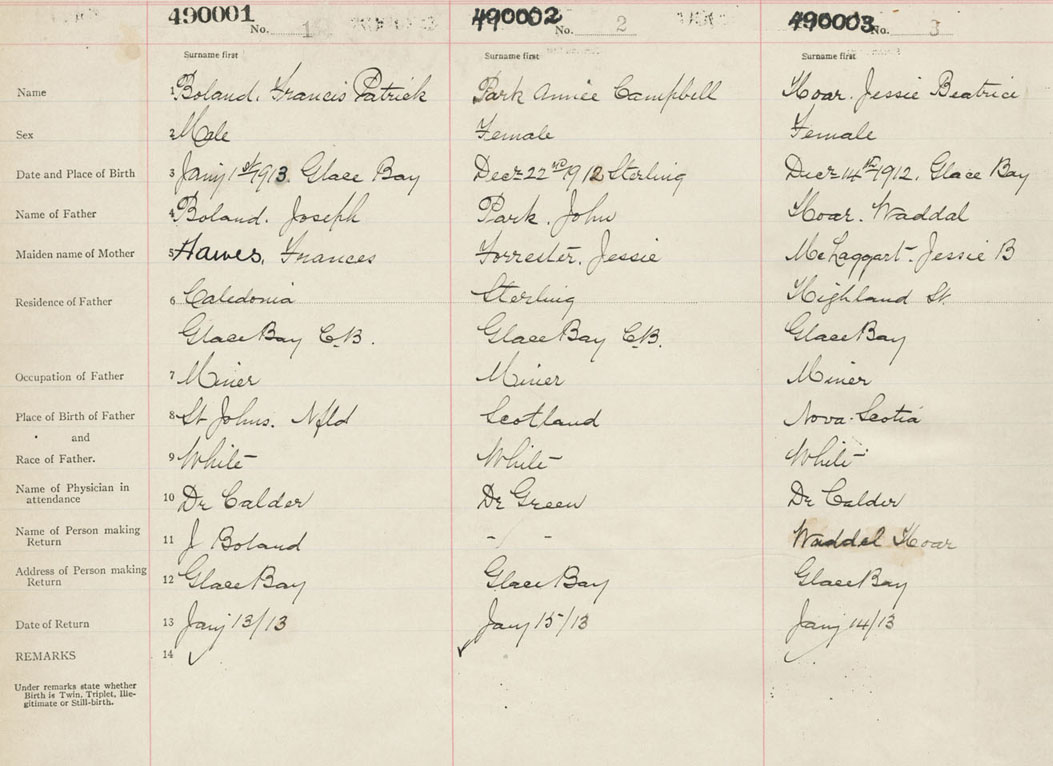 490001 490002 490003
No. 1 No. 2 No. 3
Surname first Surname first Surname first
Name 1 Boland. Francis Patrick Park Annie Campbell Hoar. Jessie Beatrice
Sex 2 Male Female Female
Date and Place of Birth 3 Jany 1st 1913. Glace Bay Decr 22nd 1912 Sterling Decr 14th 1912. Glace Bay
Name of Father 4 Boland. Joseph Park. John Hoar. Waddal
Maiden name of Mother 5 Hawes, Frances Forrester. Jessie McTaggart- Jessie B
Residence of Father 6 Caledonia Sterling Highland St.
Glace Bay C.B. Glace Bay C.B. Glace Bay
Occupation of Father 7 Miner Miner Miner
Place of Birth of Father 8 St Johns. Nfld Scotland Nova Scotia
and
Race of Father. 9 White White White
Name of Physician in attendance 10 Dr Calder Dr Green Dr Calder
Name of Person making Return 11 J Boland - / - Waddal Hoar
Address of Person making Return 12 Glace Bay Glace Bay Glace Bay
Date of Return 13 Jany 13/13 Jany 15/13 Jany 14/13
REMARKS 14
Under remarks state whether
Birth is Twin, Triplet, Ille-
gitimate or Still-birth.